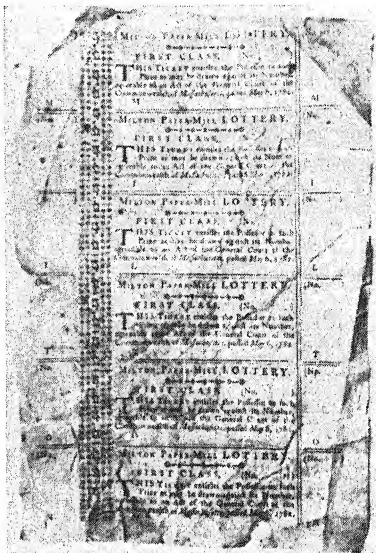 MILTON PAPER-MILL LOTTERY.
FIRST CLASS.
THIS TICKET entitles the Possessor to such
Prize as may be drawn against its Number,
agreeable to an Act of the General Court of the
Commonwealth of Massachusetts, passed May 6, 1782.
M
MILTON PAPER-MILL LOTTERY.
FIRST CLASS. (No.
THIS TICKET entitles the Possessor to such
Prize as may be drawn its Number
agreeable to an Act of the General Court of the
Commonwealth of Massachusetts, passed May 6, 1782.
I
MILTON PAPER-MILL LOTTERY.
FIRST CLASS. (No.
THIS TICKET entitles the Possessor to such
Prize as may be drawn against its Number,
agreeable to an Act of the General Court of the
Commonwealth of Massachusetts, passed May 6, 1782.
L
MILTON PAPER-MILL LOTTERY.
FIRST CLASS. (No.
THIS TICKET entitles the Possessor to such
Prize as may be drawn against its Number,
agreeable to an Act of the General Court of the
Commonwealth of Massachusetts, passed May 6, 1782.
MILTON PAPER-MILL LOTTERY.
FIRST CLASS (No.
THIS TICKET entitles the Possessor to such
Prize as may be drawn against its Number,
agreeable to an Act of the General Court of the
Commonwealth of Massachusetts, passed May 6, 1782.
MILTON PAPER-MILL LOTTERY
FIRST CLASS. (No.
THIS TICKET entitles the Possessor to such
Prize as may be drawn against its Number,
agreeable to an Act of the General Court of the
Commonwealth of Massachusetts, passed May 6, 1782.
M
No.
I
No.
L
No.
T
No.
O
No.